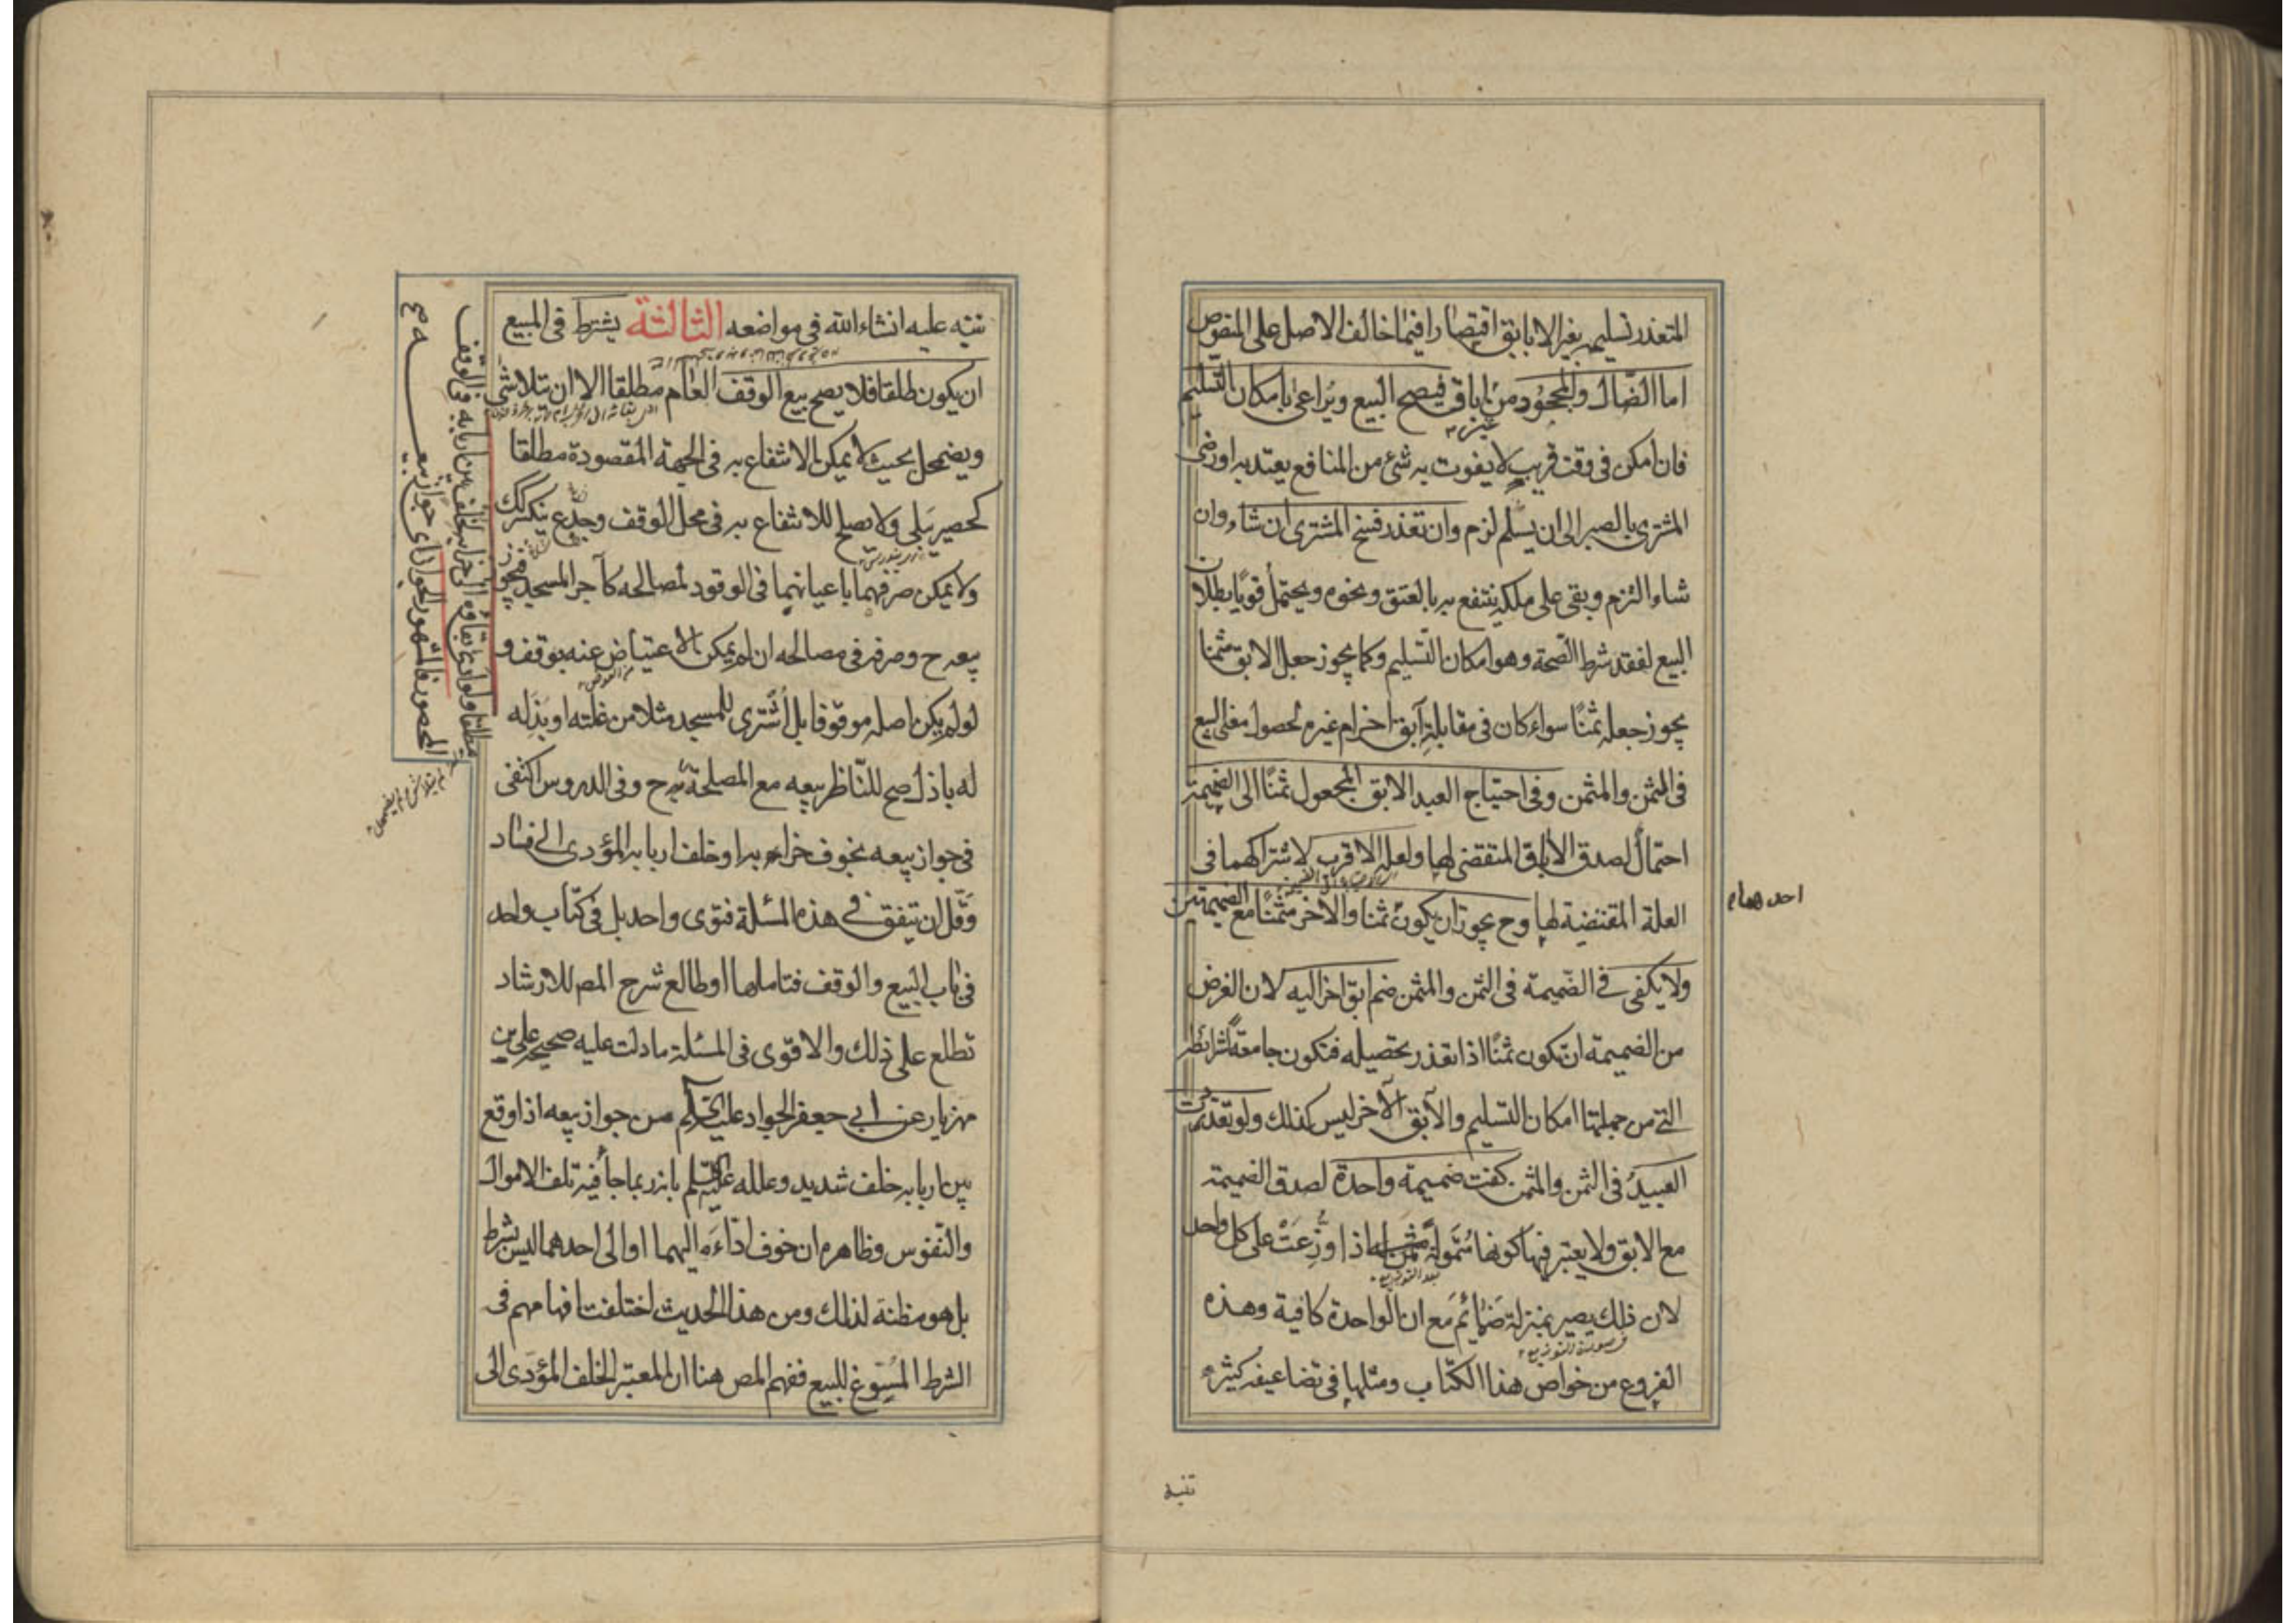 المتعذر تسليمه بغير الاباق اقتصارا فيما خالف الاصل على المنصوص
اما الضّال والمجحُود من غير اباق فيصح البيع ويُراعى بامكان التّسليم
فان امكن فى وقت قريب لا يفوت به شئ من المنافع يعتد به اورضى
المشترى بالصبر الى ان يسلم لزم وان تعذر فسخ المشترى ان شاء وان
شاء التزم وبقى على ملكه ينتفع به بالعتق ونحوه ويحتمل قويًا بطلان
البيع لفقد شرط الصّحة وهو امكان التّسليم وكما يجوز جعل الابق مثمنا
يجوز جعله ثمنًا سواء كان فى مقابلة آبق اخرام غيره لحصول معنى البيع
فى الثمن والمثمن وفى احتياج العبد الابق المجعول ثمنًا الى الضميمة
احتمالٌ لصدق الاباق المتقضى لها ولعله الاقرب لاشتراكهما فى
العلة المقتضية لها وح يجوز ان يكون ثمنا والاخر مثمنًا مع الضميمتين
احدهما
ولا يكفى فى الضّميمة فى الثمن والمثمن ضم ابق اخر اليه لان الغرض
من الضميمة ان تكون ثمنًا اذا تعذر تحصيله فتكون جامعة لشرائطه
التى من جملتها امكان التسليم والآبق الآخر ليس كذلك ولو تعددت
العبيدُ فى الثمن والمثمن كفت ضميمة واحدة لصدق الضميمة
مع الابق ولا يعتبر فيها كونها مُتموّلة اذا وُزّعَتْ على كل واحد
بعد التوزيع
لان ذلك يصير بمنزلة ضمائم مع ان الواحدة كافية وهذه
فى صورة التوزيع
الفروع من خواص هذا الكتاب ومثلها فى تضاعيفه كثيره
تنبه
ننبه عليه انشاء الله فى مواضعه الثالثة يشترط فى المبيع
ان يكون طلقا فلا يصح بيع الوقف العام مطلقا الا ان يتلاشى
ويضمحل بحيث لا يمكن الانتفاع به فى الجهة المقصودة مطلقا
كحصير يَبلى ولا يصلح للانتفاع به فى محل الوقف وجذع ينكسر كك
ولا يمكن صرفهما باعيانهما فى الوقود لمصالحه كآجر المسجد فيجوز
بيعه ح وصرفه فى مصالحه ان لم يمكن الاعتياض عنه بوقف و
لو لم يكن اصله موقوفا بل اُشترى للمسجد مثلا من غلته او بَذَله
له باذل صح للنّاظر بيعه مع المصلحة ح وفى الدروس اكتفى
فى جواز بيعه بخوف خرابه او خلف اربابه المؤدى الى فساد
وقّل ان يتفق فى هذه المسئلة فتوى واحد بل فى كتاب واحد
فى باب البيع والوقف فتاملها او طالع شرح المص للارشاد
تطلع على ذلك والاقوى فى المسئلة ما دلت عليه صحيحة على بن
مهزيار عن ابى جعفر الجواد عليه السّلم من جواز بيعه اذا وقع
بين اربابه خلف شديد وعلله عليه السّلم بانه ربما جاء فيه تلف الاموال
والنّفوس وظاهره ان خوف ادّاءه اليهما او الى احدهما ليس بشرط
بل هو مظنة لذلك ومن هذا الحديث اختلفت افهامهم فى
الشرط المُسَوغ للبيع ففهم المص هنا ان المعتبر الخلف المؤدى الى
مطلقا ولو ادى بقاؤه الى خرابه لخلف بين اربابه فى الوقف
المحصور فالمشهور الجواز اى جواز بيعه ح